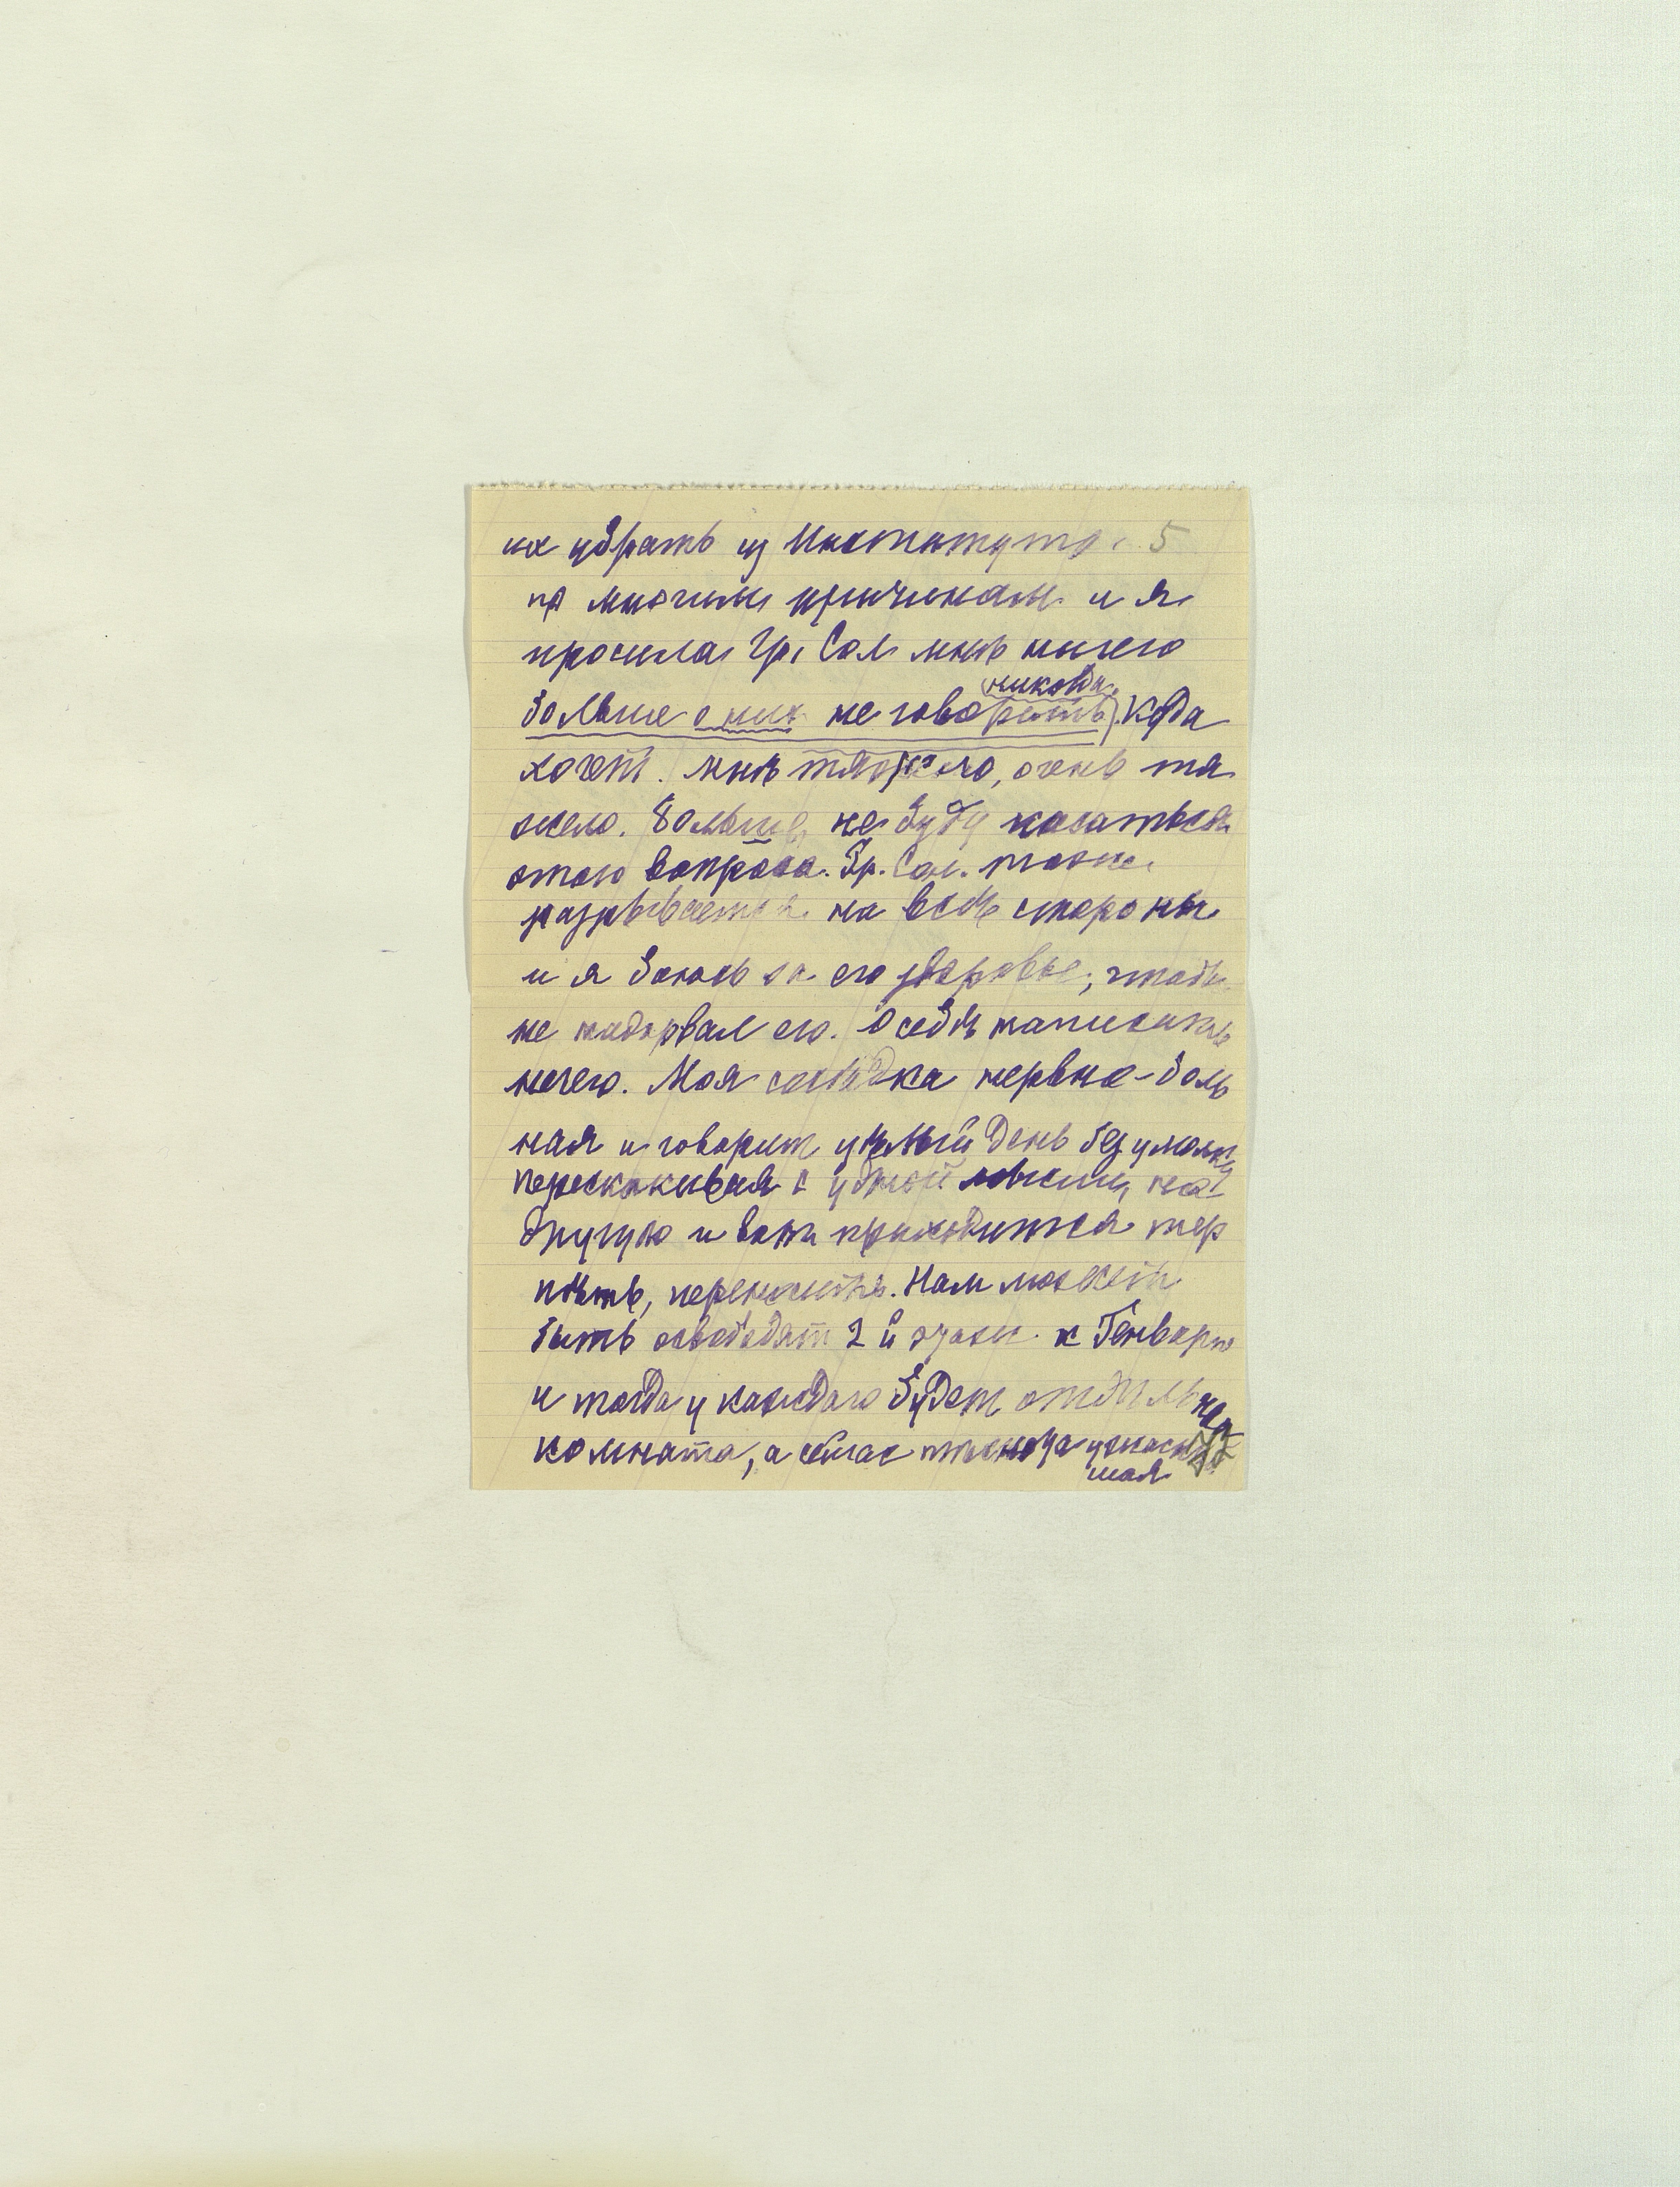 их убрать из Института. 5
по многим причинам и я
просила Гр. Сол мнѣ ничего
(никогда)
больше о них не говорить). Куда
хочет. Мнѣ тяжело, очень тя
жело. Больше не буду касаться
этого вопроса. Гр. Сол. тоже
разрывается на всѣ стороны
и я боюсь за его здоровье, чтобы
не надорвал его. О себѣ написать
нечего. Моя сосѣдка нервно-боль
ная и говорит цѣлый день без умолку
перескакивая с одной мысли на
другую и вот приходится тер
пѣть, переносить. Нам может
быть освободят 2й этаж к Генварю
и тогда у каждаго будет отдѣльная
комната, а сейчас тѣснота ужаснѣй
шая